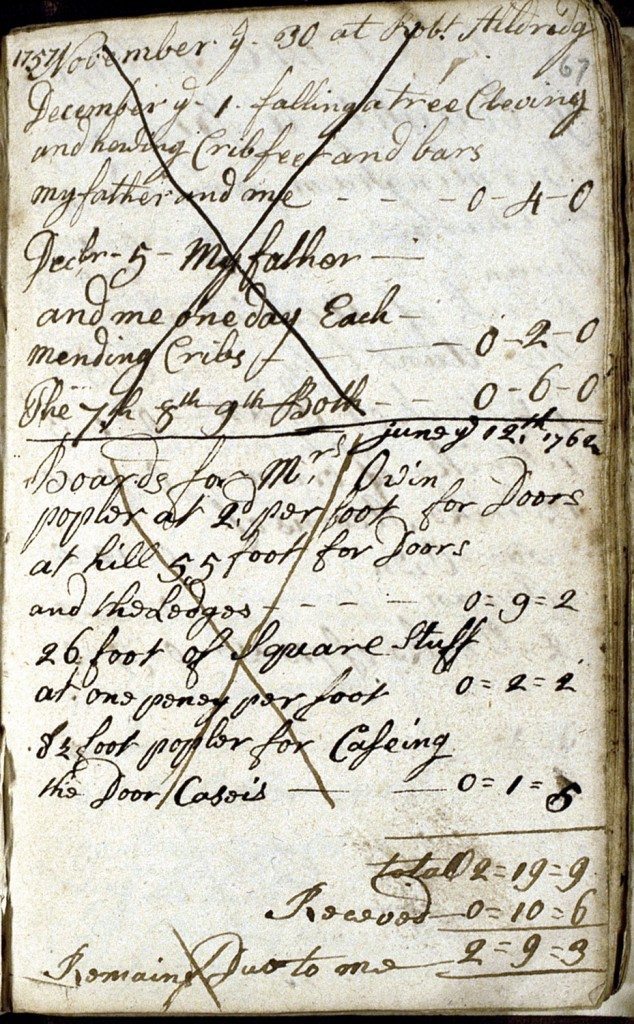 1757/ November y. 30 at Robt. Aldredg
67
December y. 1. falling a tree Cleving
and hewing Crib feet and bars
my father and me - - - 0-4-0
Decbr-5- My father -
and me one day Each -
mending Cribs - - - 0-2-0
The 7th 8th 9th Both - - 0-6-0
june ye 12th. 1762
Boards for Mrs. Ovin
popler at 2d per foot for Doors
at hill 55 foot for Doors
and the Ledges - - - - 0=9=2
26 foot of Square Stuff
at one peney per foot 0=2=2
8½ foot popler for Caseing
the Door Caseis - - 0=1=5
total 2=19=9
Receved 0=10=6
Remains Due to me 2=9=3